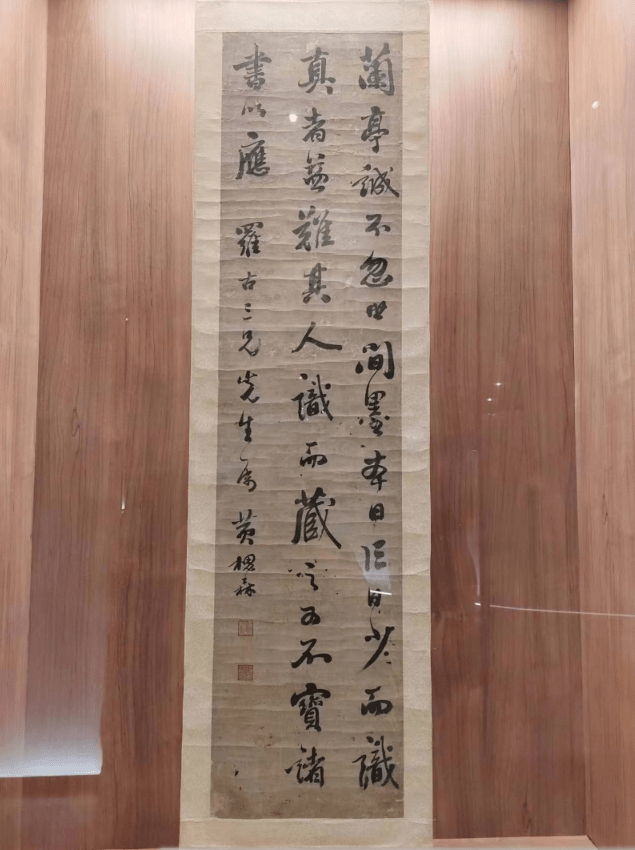 蘭亭誠不忽世間墨本日亡日少而識
真者蓋難其人識而藏之可不寶諸
書以應 羅古三兄先生屬 黃槐森